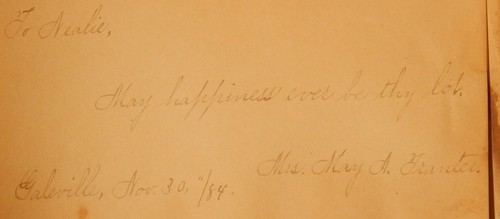 To Nealie,
May happiness ever be thy lot.
Mrs. May A.
Galeville, Nov. 30, "/84.